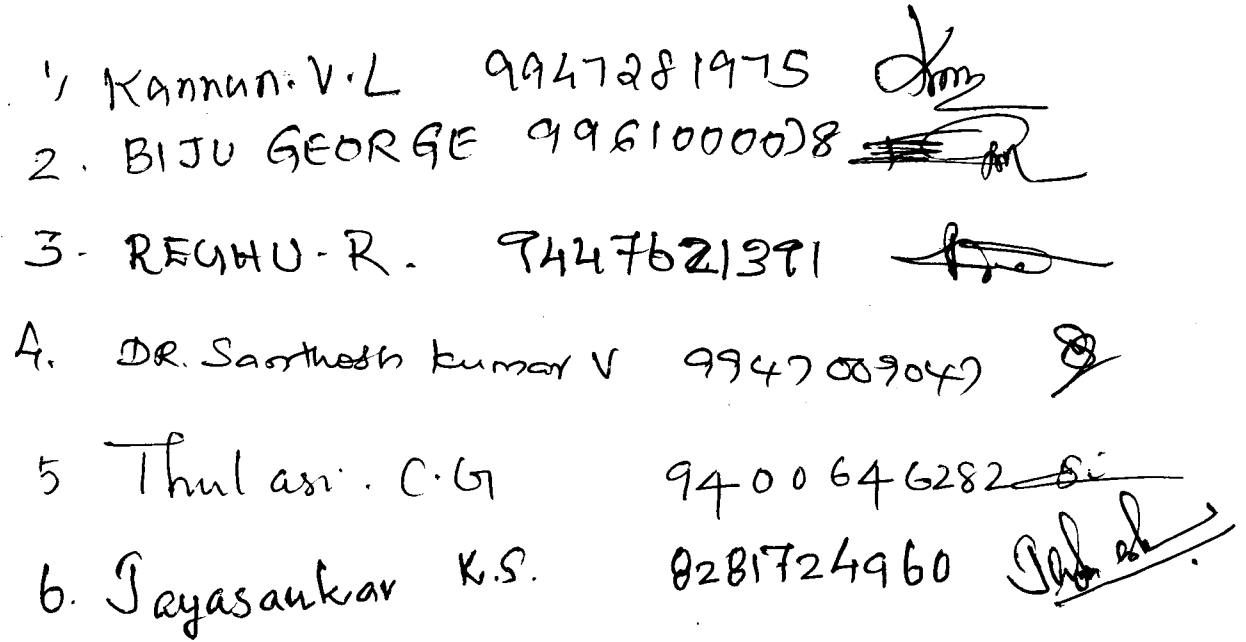 1, Kannan. V.L 9947281975
2. BIJU GEORGE 9961000078
3. REGHU. R. 9447621391
4. DR. Santhosh kumar V 9947009047
5 Thulasi. C.G 9400646282
6. Jayasankar K.S. 8281724960